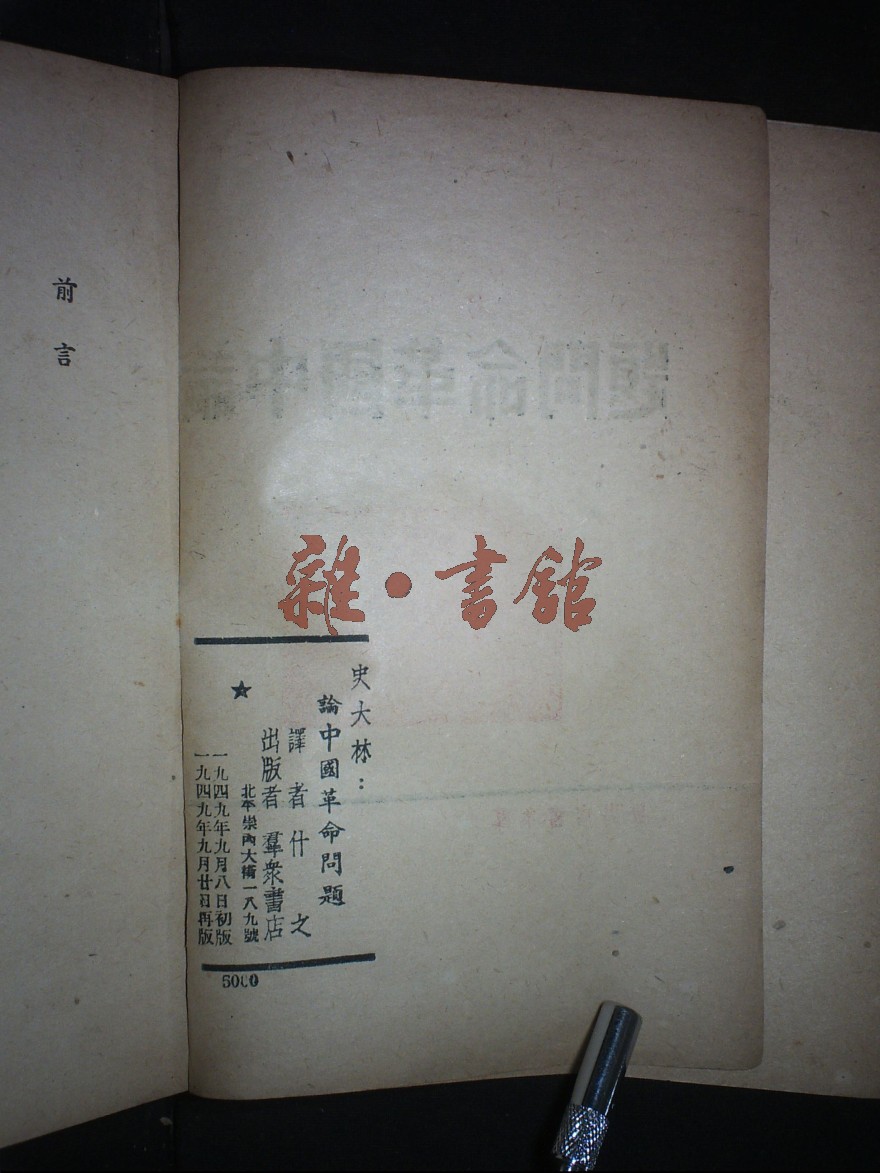 前言
雜·書館
史大林：
論中國革命問題
譯者 什之
出版者 羣衆書店
北平崇內大街一八九號
一九四九年九月八日初版
一九四九年九月廿日再版
5000
論中國革命問題